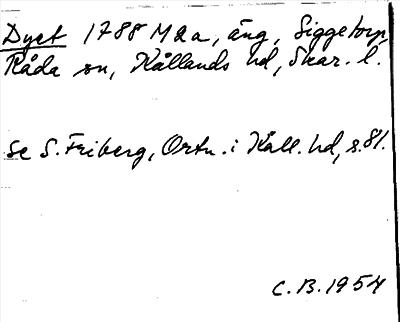 Dyet 1788 M2a, äng, Siggetorp,
Råda sn, Kållands hd, Skar. l.
Se S. Friberg, Ortn. i Kåll. hd, s. 81.
C.B. 1954